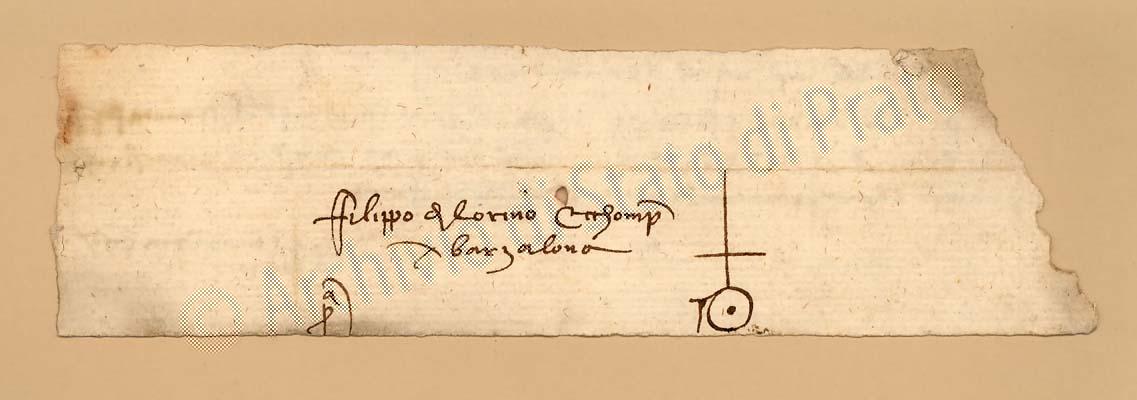 © Archivio di Stato di Prato
Filippo di Lorino e chomp
barzalona